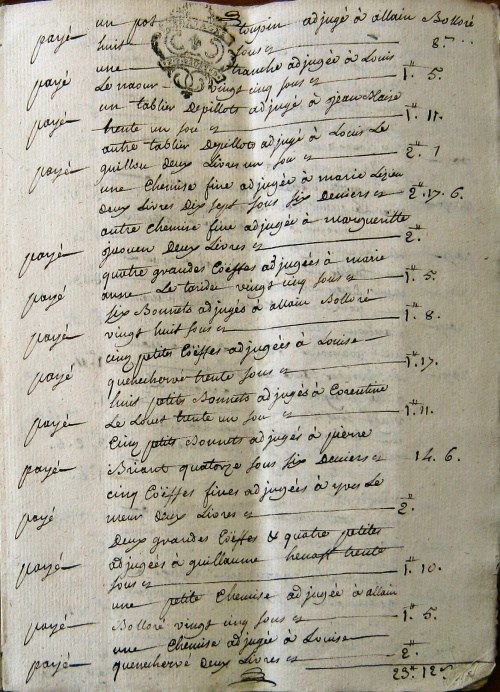 un pot toupin adjugé à allain Bolloré
payé huit sous 8.
une tranche adjugée à Louis
payé Le naour vingt cinq sous 1.# 5.
un tablier Depillots adjugé à jean
payé trente un sou 1.# 11.
autre tablier Depillots adjugé à Louis Le
payé guillou Deux Livres un sou 2.# 1
une chemise fine adjugée à marie
Deux Livres Dix sept sous six Deniers 2.# 17. 6.
autre chemise fine adjugée à margueritte
payé Deux Livres 2.#
quatre grandes Coëffes adjugées à marie
payé anne Le vingt cinq sous 1.# 5.
six Bonnets adjugés à allain Bolloré
payé vingt huit sous 1.# 8.
cinq petites Coëffes adjugées à Louise
payé quenehervé trente sous 1.# 17.
huit petits Bonnets adjugés à Corentine
payé Le Louet trente un sou 1.# 11.
Cinq petits Bonnets adjugés à pierre
payé Briant quatorze sous six Deniers 14. 6.
cinq Coëffes fines adjugées à yves Le
payé meur Deux Livres 2.#
Deux grandes Coëffes & quatre petites
payé adjugées à guillaume trente
sous 1.# 10.
une petite Chemise adjugée à allain
payé Bolloré vingt cinq sous 1.# 5.
une chemise adjugée à Louise
payé quenehervé Deux Livres 2.#
23.# 12.